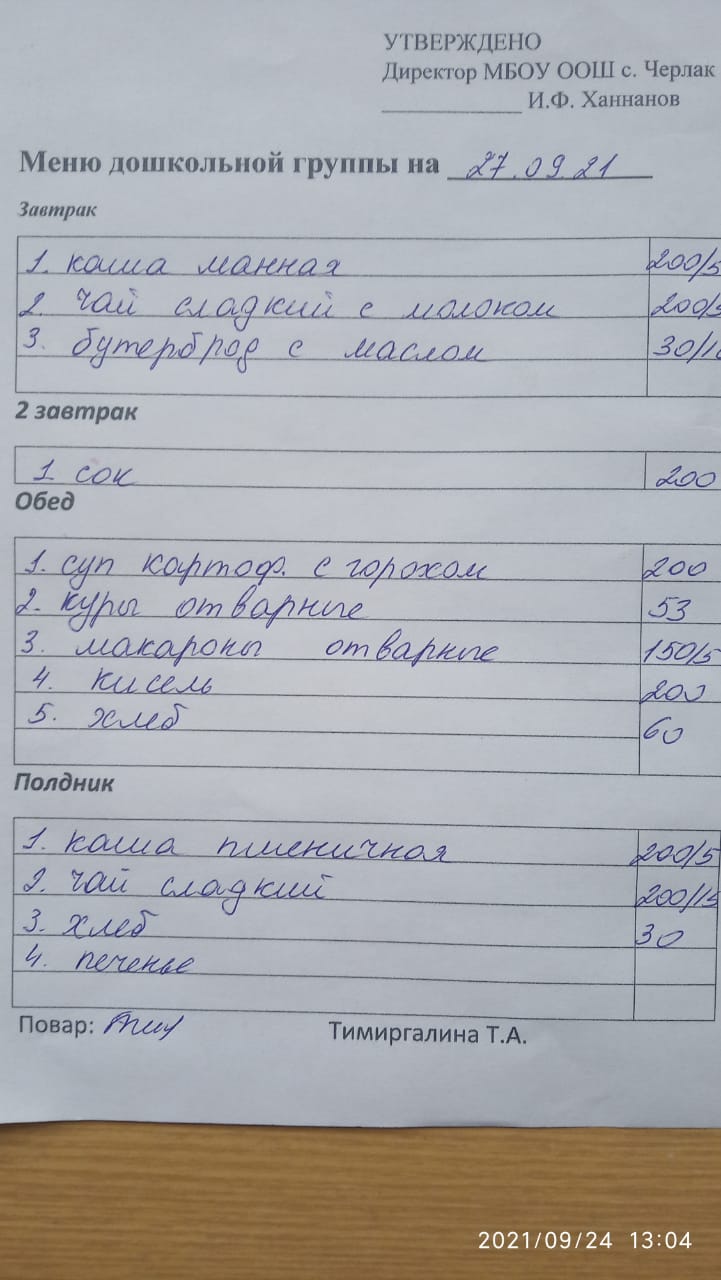 УТВЕРЖДЕНО
Директор МБОУ ООШ с. Черлак
____________ И.Ф. Ханнанов
Меню дошкольной группы на 27.09.21
Завтрак
1. каша манная 200/5
2. чай сладкий с молоком 200/
3. бутерброд с маслом 30/10
2 завтрак
1 сок 200
Обед
1. суп картоф. с горохом 200
2. куры отварные 53
3. макароны отварные 150/5
4. кисель 200
5. хлеб 60
Полдник
1. каша пшеничная 200/5
2. чай сладкий 200/15
3. хлеб 30
4. печенье
Повар: Тимиргалина Т.А.
2021/09/24 13:04